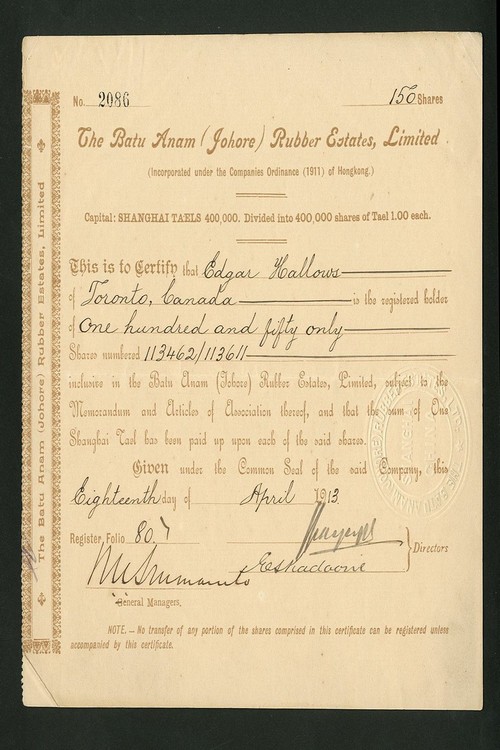 No. 2086 150 Shares
The Batu Anam (Johore) Rubber Estates, Limited.
(Incorporated under the Companies Ordinance (1911) of Hongkong.)
Capital: SHANGHAI TAELS 400,000. Divided into 400,000 shares of Tael 1.00 each.
This is to Certify that Edgar Hallows
of Toronto, Canada is the registered holder
of One hundred and fifty only
Shares numbered 113462/113611
inclusive in the Batu Anam (Johore) Rubber Estates, Limited, subject to the
Memorandum and Articles of Association thereof, and that the sum of One
Shanghai Tael has been paid up upon each of the said shares.
Given under the Common Seal of the said Company, this
Eighteenth day of April 1913.
Register, Folio 807
Directors
General Managers.
NOTE.—No transfer of any portion of the shares comprised in this certificate can be registered unless
accompanied by this certificate.
The Batu Anam (Johore) Rubber Estates, Limited